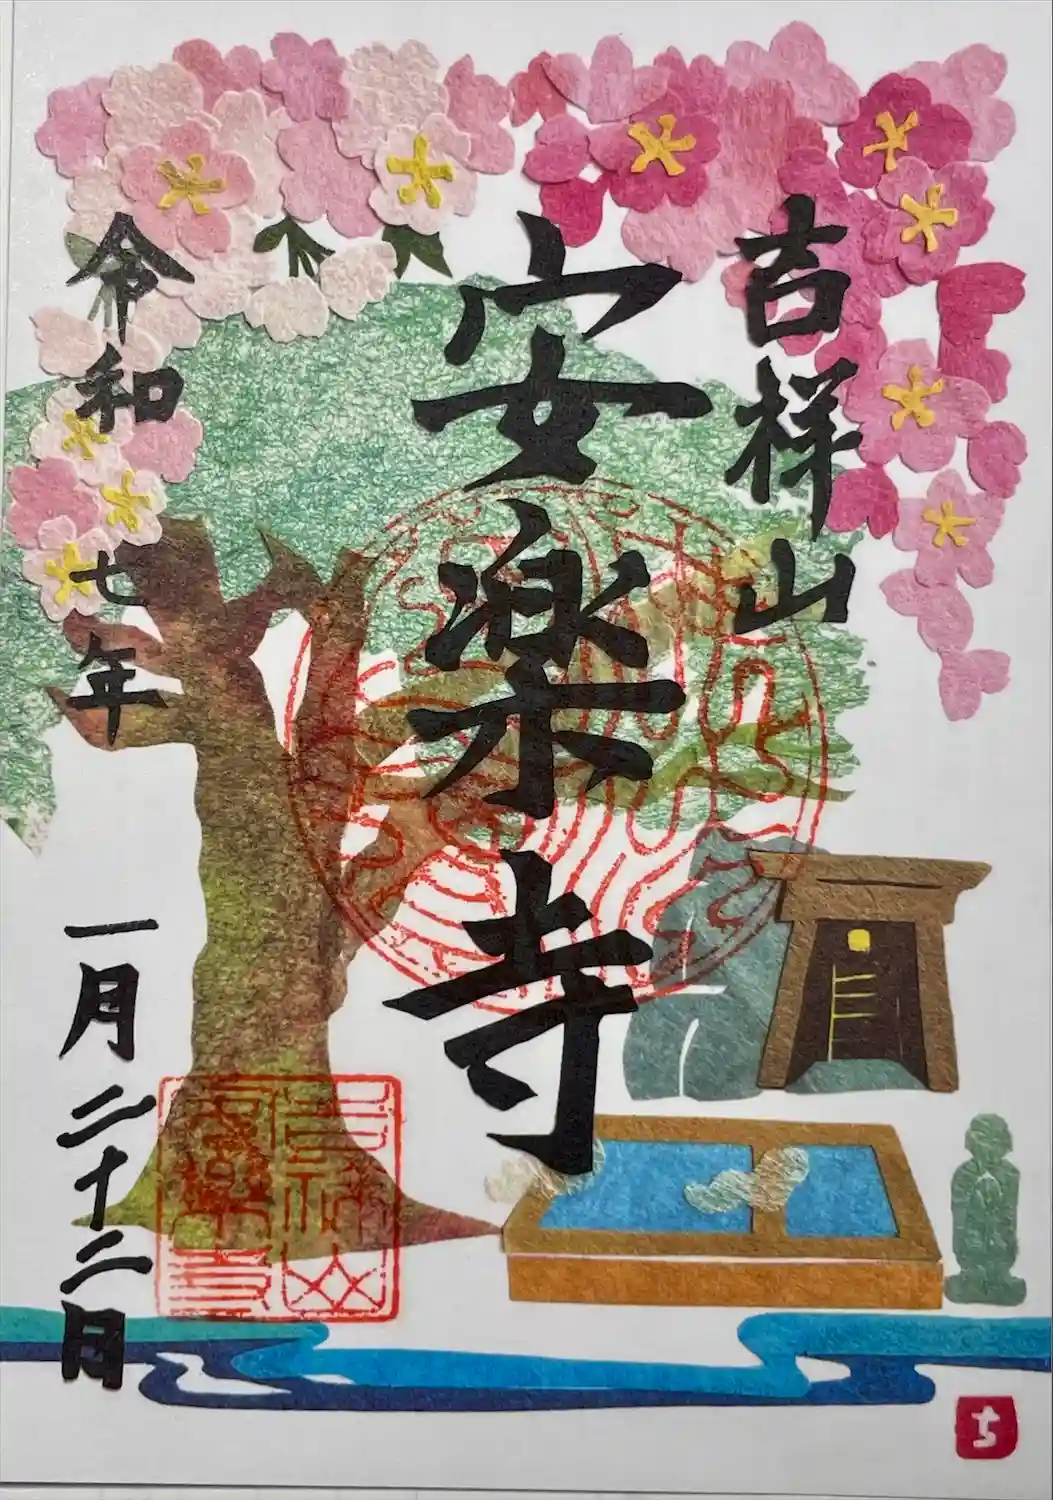 吉祥山
安楽寺
令和七年 一月二十二日
ち